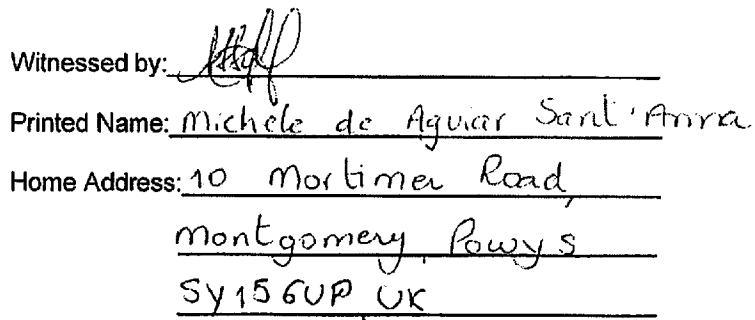 Witnessed by:
Printed Name: Michele de Aguiar Sant'Anna
Home Address: 10 Mortimer Road,
Montgomery, Powys
SY156UP UK